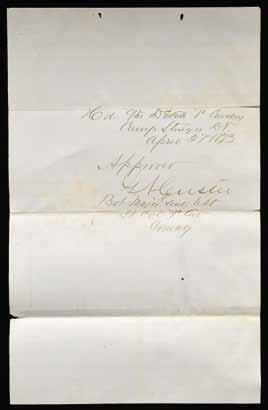 Hd. Qrs Detch 7th Cavalry
Camp Sturgis D.T.
April 27 1873
Approved
G A Custer
Bvt Major Genl USA
Lt Col 7th Cav
Comdg